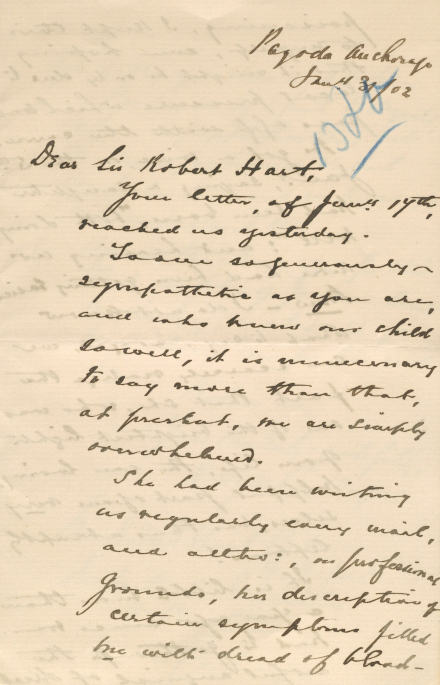 Pagoda Anchorage
Jany 31/02
Dear Sir Robert Hart,
Your letter, of Jany 19th,
reached us yesterday.
To one so generously
sympathetic as you are,
and who knew our child
so well, it is unnecessary
to say more than that,
at present, we are simply
overwhelmed.
She had been writing
us regularly every mail,
and altho:, on professional
grounds, her description of
certain symptoms filled
me with dread of blood-